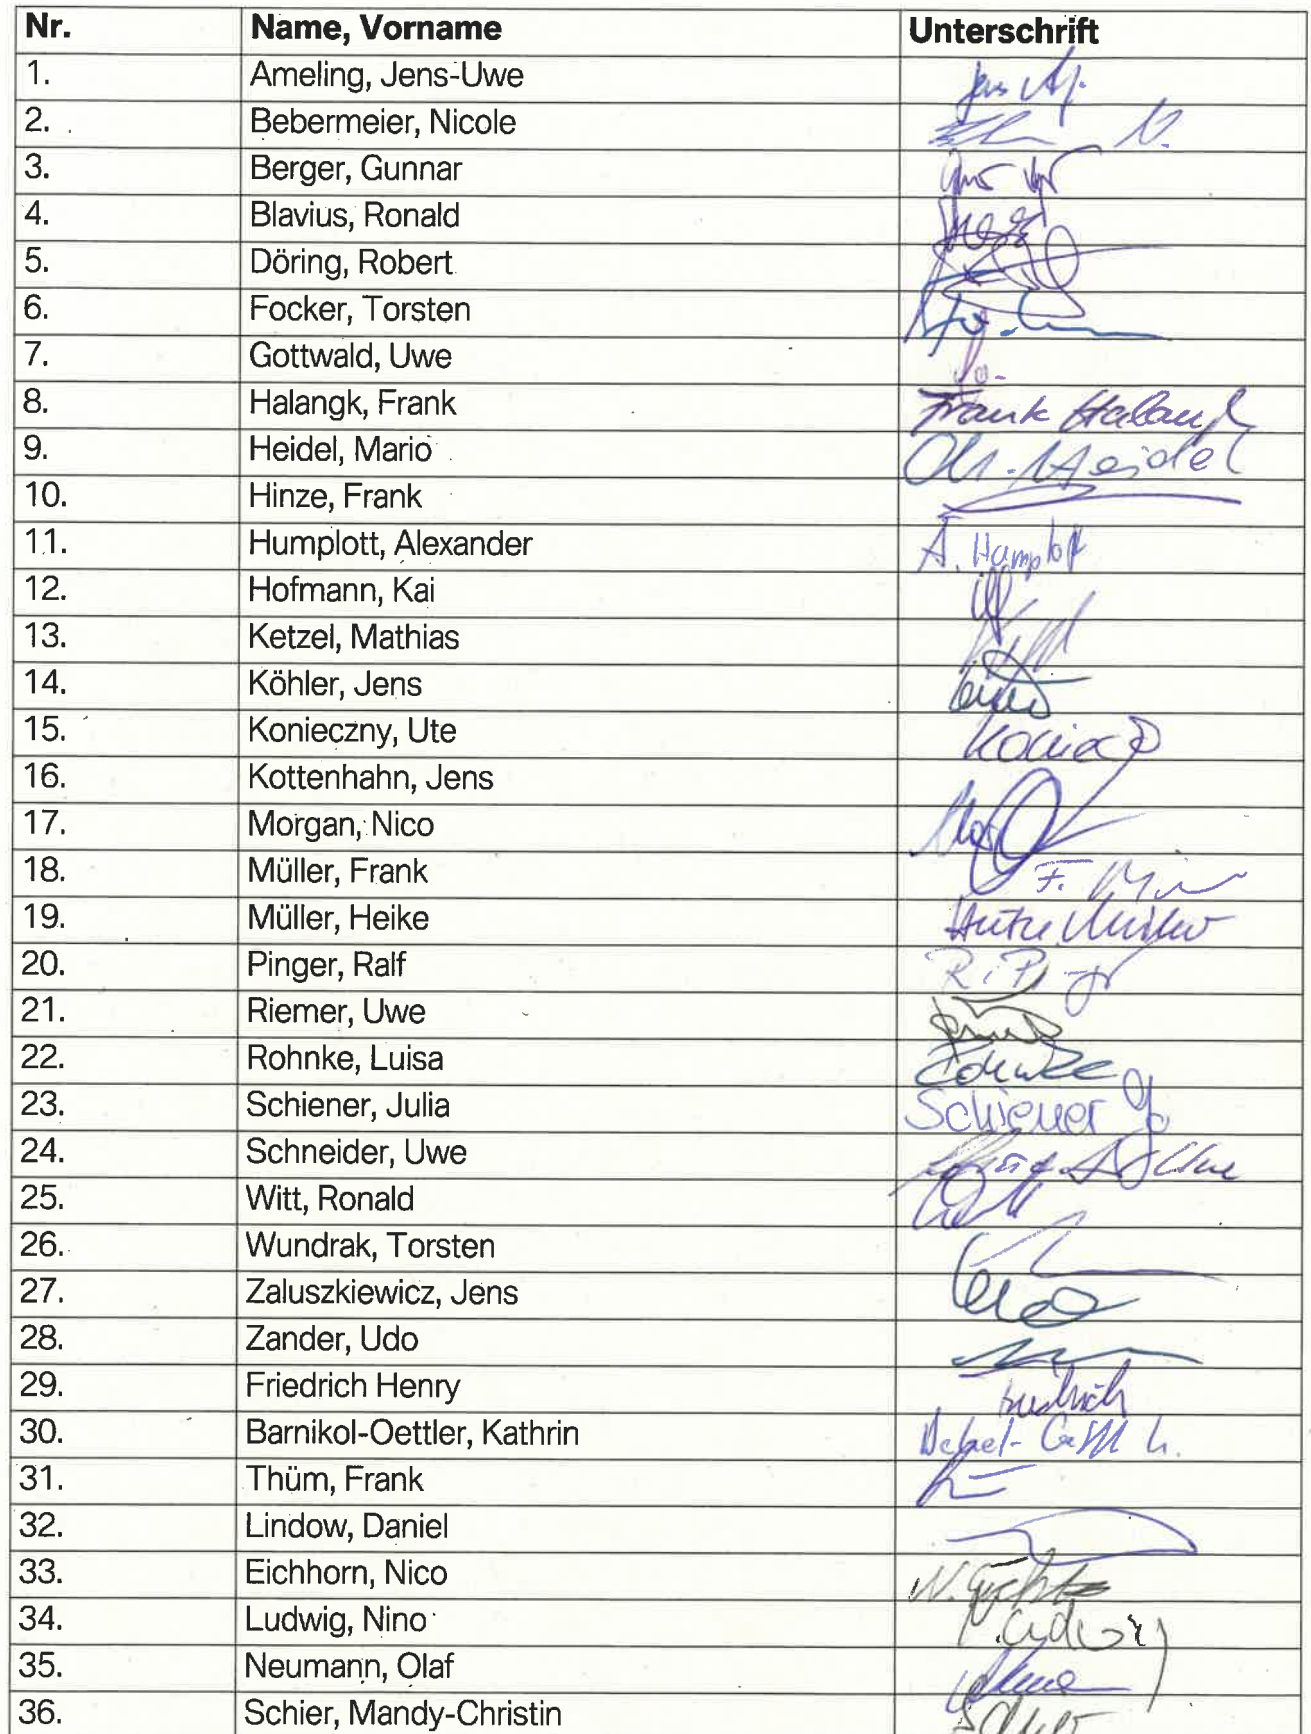 Nr. Name, Vorname Unterschrift
1. Ameling, Jens-Uwe
2. Bebermeier, Nicole
3. Berger, Gunnar
4. Blavius, Ronald
5. Döring, Robert
6. Focker, Torsten
7. Gottwald, Uwe
8. Halangk, Frank Frank Halangk
9. Heidel, Mario Heidel
10. Hinze, Frank
11. Humplott, Alexander A. Humplott
12. Hofmann, Kai
13. Ketzel, Mathias
14. Köhler, Jens
15. Konieczny, Ute
16. Kottenhahn, Jens
17. Morgan, Nico
18. Müller, Frank F.
19. Müller, Heike Heike Müller
20. Pinger, Ralf
21. Riemer, Uwe
22. Rohnke, Luisa Rohnke
23. Schiener, Julia Schiener
24. Schneider, Uwe Uwe
25. Witt, Ronald
26. Wundrak, Torsten
27. Zaluszkiewicz, Jens
28. Zander, Udo
29. Friedrich Henry Friedrich
30. Barnikol-Oettler, Kathrin
31. Thüm, Frank
32. Lindow, Daniel
33. Eichhorn, Nico
34. Ludwig, Nino
35. Neumann, Olaf
36. Schier, Mandy-Christin